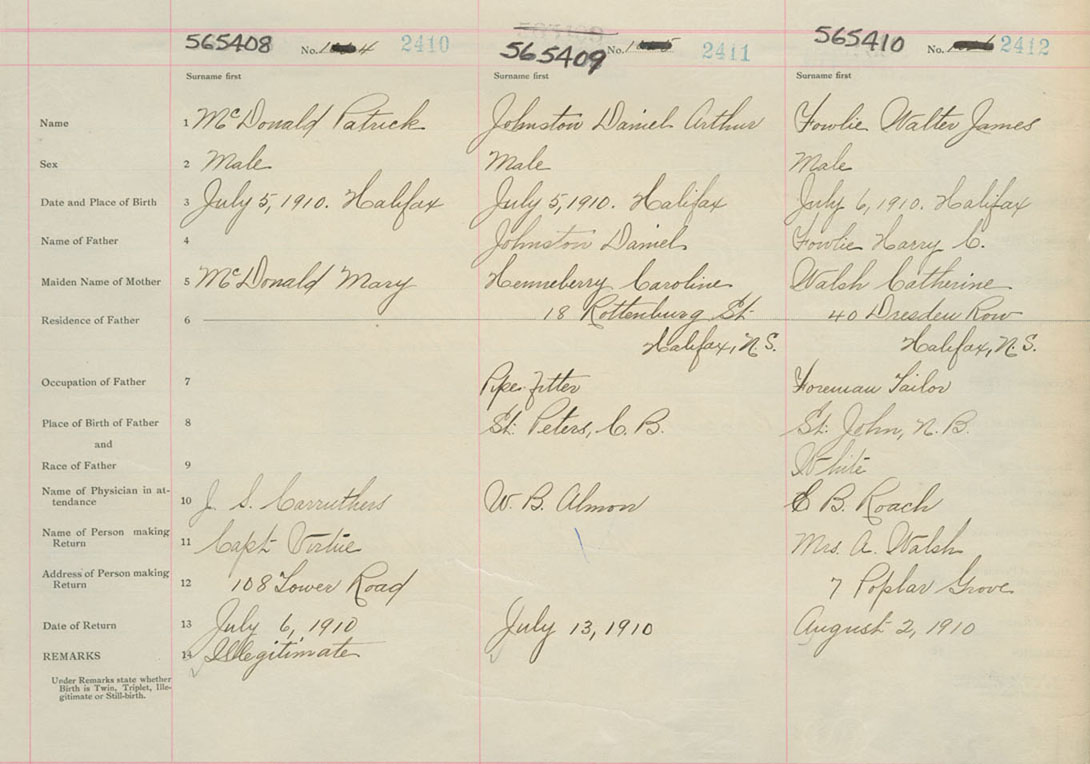 565408 No. 2410 565409 No. 2411 565410 No. 2412
Surname first Surname first Surname first
Name 1 McDonald Patrick Johnston Daniel Arthur Fowlie Walter James
Sex 2 Male Male Male
Date and Place of Birth 3 July 5, 1910. Halifax July 5, 1910. Halifax July 6, 1910. Halifax
Name of Father 4 Johnston Daniel Fowlie Harry C.
Maiden Name of Mother 5 McDonald Mary Henneberry Caroline Walsh Catherine
Residence of Father 6 18 Rottenburg St. 40 Dresden Row
Halifax, N.S. Halifax, N.S.
Occupation of Father 7 Pipe fitter Foreman Tailor
Place of Birth of Father 8 St. Peters, C.B. St. John, N.B.
and
Race of Father 9 White
Name of Physician in at-
tendance 10 J. S. Carruthers W. B. Almon B. Roach
Name of Person making
Return 11 Capt Virtue Mrs. A. Walsh
Address of Person making
Return 12 108 Lower Road 7 Poplar Grove
Date of Return 13 July 6, 1910 July 13, 1910 August 2, 1910
REMARKS 14 Illegitimate
Under Remarks state whether
Birth is Twin, Triplet, Ille-
gitimate or Still-birth.